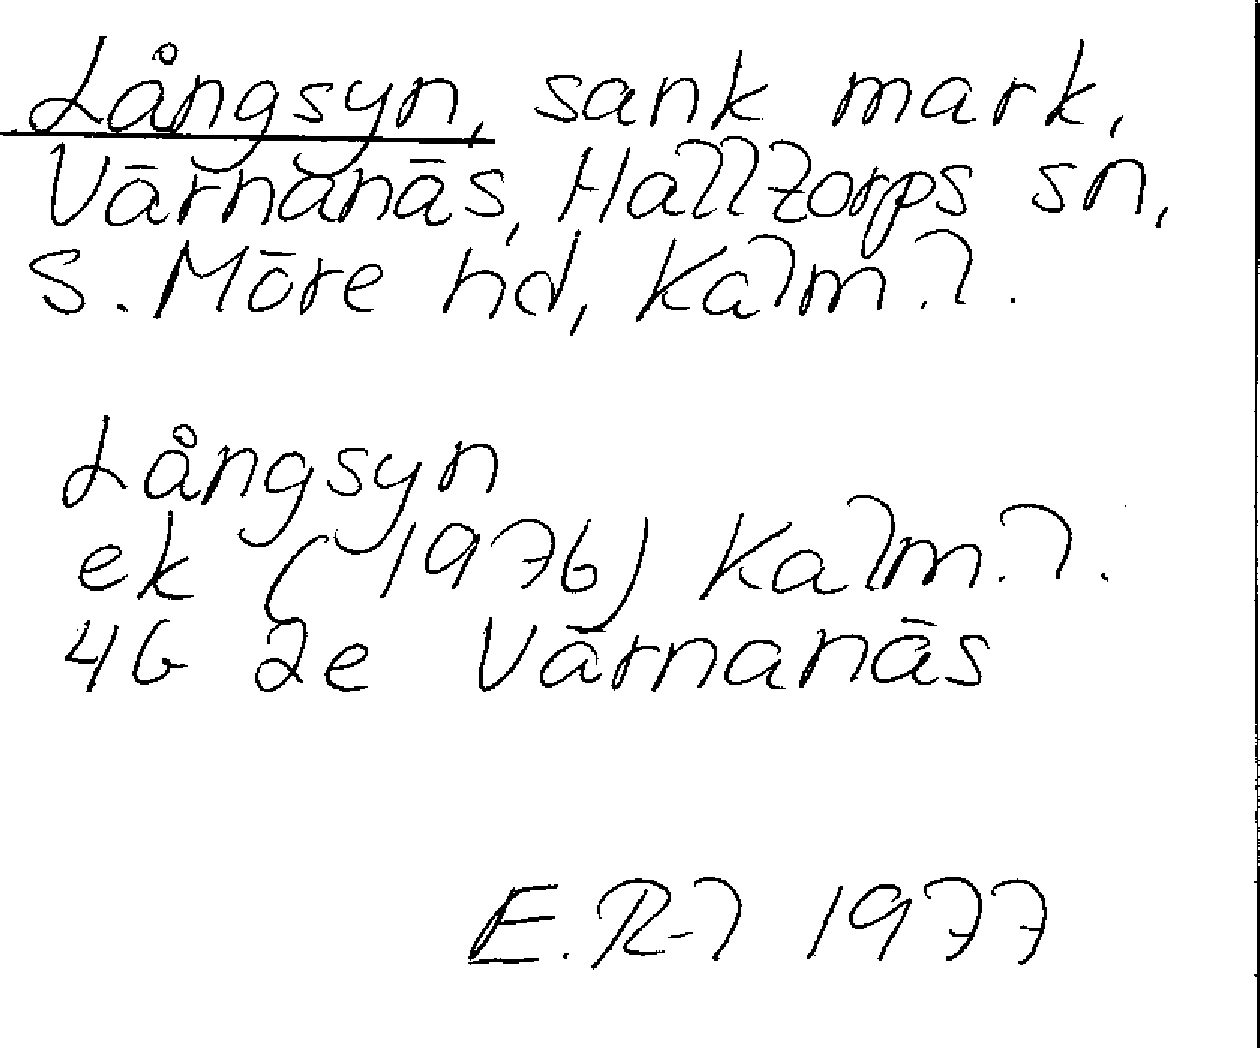 Långsyn, sank mark,
Värnanäs, Halltorps sn,
S. Möre hd, Kalm.l.
Långsyn
ek (1976) Kalm.l.
4G 2e Värnanäs
E.R-l 1977